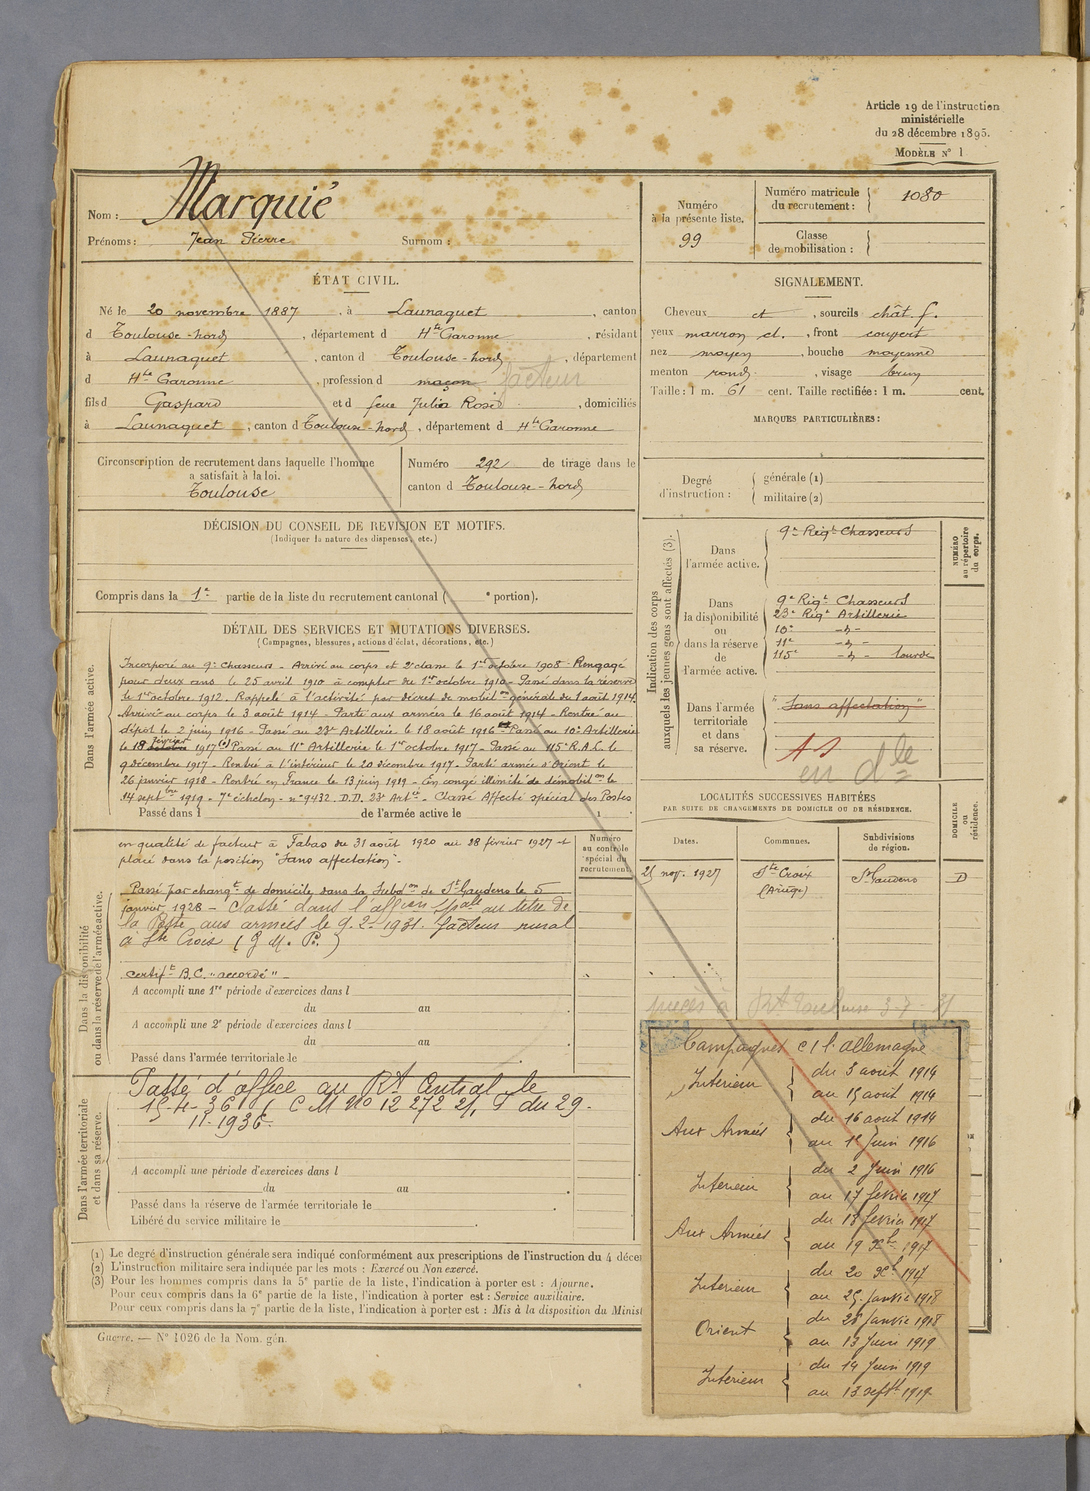 Article 19 de l'instruction
ministérielle
du 28 décembre 1895.
MODÈLE N° 1
Nom : Marquié
Prénoms : Jean Pierre Surnom :
Numéro
à la présente liste.
99
Numéro matricule
du recrutement : 1080
Classe
de mobilisation :
ÉTAT CIVIL.
Né le 20 novembre 1887, à Launaguet, canton
d Toulouse-nord, département d Hte Garonne, résidant
à Launaguet, canton d Toulouse-nord, département
d Hte Garonne, profession d maçon facteur
fils d Gaspard et d feue Julia Rosé, domiciliés
à Launaguet, canton d Toulouse-nord, département d Hte Garonne
Circonscription de recrutement dans laquelle l'homme
a satisfait à la loi.
Toulouse
Numéro 292 de tirage dans le
canton d Toulouse-nord
SIGNALEMENT.
Cheveux ct, sourcils chât. f.
yeux marron cl., front couvert
nez moyen, bouche moyenne
menton rond, visage brun
Taille : 1 m. 61 cent. Taille rectifiée : 1 m. cent.
MARQUES PARTICULIÈRES :
Degré
d'instruction :
générale (1)
militaire (2)
DÉCISION DU CONSEIL DE REVISION ET MOTIFS.
(Indiquer la nature des dispenses, etc.)
Compris dans la 1e partie de la liste du recrutement cantonal ( e portion).
DÉTAIL DES SERVICES ET MUTATIONS DIVERSES.
(Campagnes, blessures, actions d'éclat, décorations, etc.)
Dans l'armée active.
Incorporé au 9e Chasseurs - Arrivé au corps et 2e classe le 1er octobre 1908 - Rengagé
pour deux ans le 25 avril 1910 à compter du 1er octobre 1910 - Passé dans la réserve
le 1er octobre 1912. Rappelé à l'activité par décret de mobilon générale du 1 août 1914
Arrivé au corps le 3 août 1914 - Parti aux armées le 16 août 1914 - Rentré au
dépôt le 2 juin 1916 - Passé au 23e Artillerie le 18 août 1916 Passé au 10e Artillerie
le 18 octobre février 1917 Passé au 11e Artillerie le 1er octobre 1917 - Passé au 115e R.A.L. le
9 décembre 1917 - Rentré à l'intérieur le 20 décembre 1917 - Parti armée d'Orient le
26 janvier 1918 - Rentré en France le 13 juin 1919 - En congé illimité de démobilon le
14 septbre 1919 - 7e échelon - n° 9432. D.D. 23e Artie - Classé Affecté spécial des Postes
Passé dans l de l'armée active le 1
Indication des corps
auxquels les jeunes gens sont affectés (3).
Dans
l'armée active.
9e Régt Chasseurs
NUMÉRO
au répertoire
du corps.
Dans
la disponibilité
ou
dans la réserve
de
l'armée active.
9e Régt Chasseurs
23e Régt Artillerie
10e -d-
11e -d-
115e -d- lourde
Dans l'armée
territoriale
et dans
sa réserve.
"Sans affectation"
AS
en dlle
LOCALITÉS SUCCESSIVES HABITÉES
PAR SUITE DE CHANGEMENTS DE DOMICILE OU DE RÉSIDENCE.
Dates.
Communes.
Subdivisions
de région.
DOMICILE
ou
résidence.
25 nov. 1927 Ste Croix St Gaudens D
(Ariège)
Numéro
au contrôle
spécial du
recrutement
Dans la disponibilité
ou dans la réserve de l'armée active.
en qualité de facteur à Fabas du 31 août 1920 au 28 février 1927 et
placé dans la position "Sans affectation".
Passé par changt de domicile dans la Subdon de St Gaudens le 5
janvier 1928 - Classé dans l'affon spale au titre de
la Poste aux armées le 9-2-1931. facteur rural
à Ste Croix (G.M.P.)
certift B.C. "accordé" -
A accompli une 1re période d'exercices dans l
du au .
A accompli une 2e période d'exercices dans l
du au .
Passé dans l'armée territoriale le
Dans l'armée territoriale
et dans sa réserve.
Passé d'office au Rt Central le
15-4-36 C M No 12 272 du 29-
11-1936.
A accompli une période d'exercices dans l
du au .
Passé dans la réserve de l'armée territoriale le
Libéré du service militaire le
(1) Le degré d'instruction générale sera indiqué conformément aux prescriptions de l'instruction du 4 décem
(2) L'instruction militaire sera indiquée par les mots : Exercé ou Non exercé.
(3) Pour les hommes compris dans la 5e partie de la liste, l'indication à porter est : Ajourné.
Pour ceux compris dans la 6e partie de la liste, l'indication à porter est : Service auxiliaire.
Pour ceux compris dans la 7e partie de la liste, l'indication à porter est : Mis à la disposition du Minist
Guerre. — N° 1026 de la Nom. gén.
Campagnes c/ l'Allemagne
Intérieur du 3 août 1914
au 15 août 1914
Aux Armées du 16 août 1914
au 1er Juin 1916
Intérieur du 2 Juin 1916
au 17 février 1917
Aux Armées du 18 février 1917
au 19 Xbre 1917
Intérieur du 20 Xbre 1917
au 25 janvier 1918
Orient du 26 janvier 1918
au 13 Juin 1919
Intérieur du 14 Juin 1919
au 13 septbre 1919